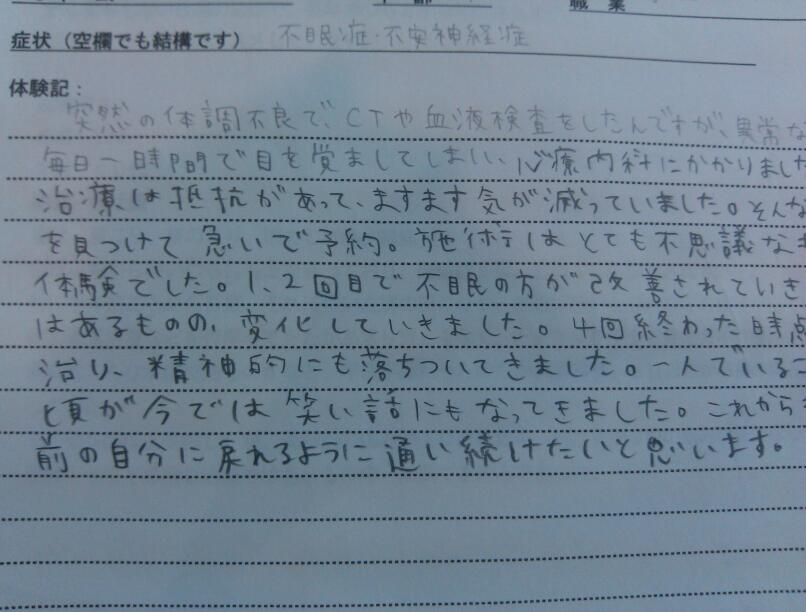 職業
症状（空欄でも結構です） 不眠症・不安神経症
体験記：
突然の体調不良で、CTや血液検査をしたんですが、異常な
毎日一時間で目を覚ましてしまい、心療内科にかかりました
治療は抵抗があって、ますます気が減っていました。そんな
を見つけて急いで予約。施術はとても不思議な
体験でした。1、2回目で不眠の方が改善されていき
はあるものの、変化していきました。4回終わった時点
治り、精神的にも落ちついてきました。一人でいるこ
頃が今では笑い話にもなってきました。これから
前の自分に戻れるように通い続けたいと思います。